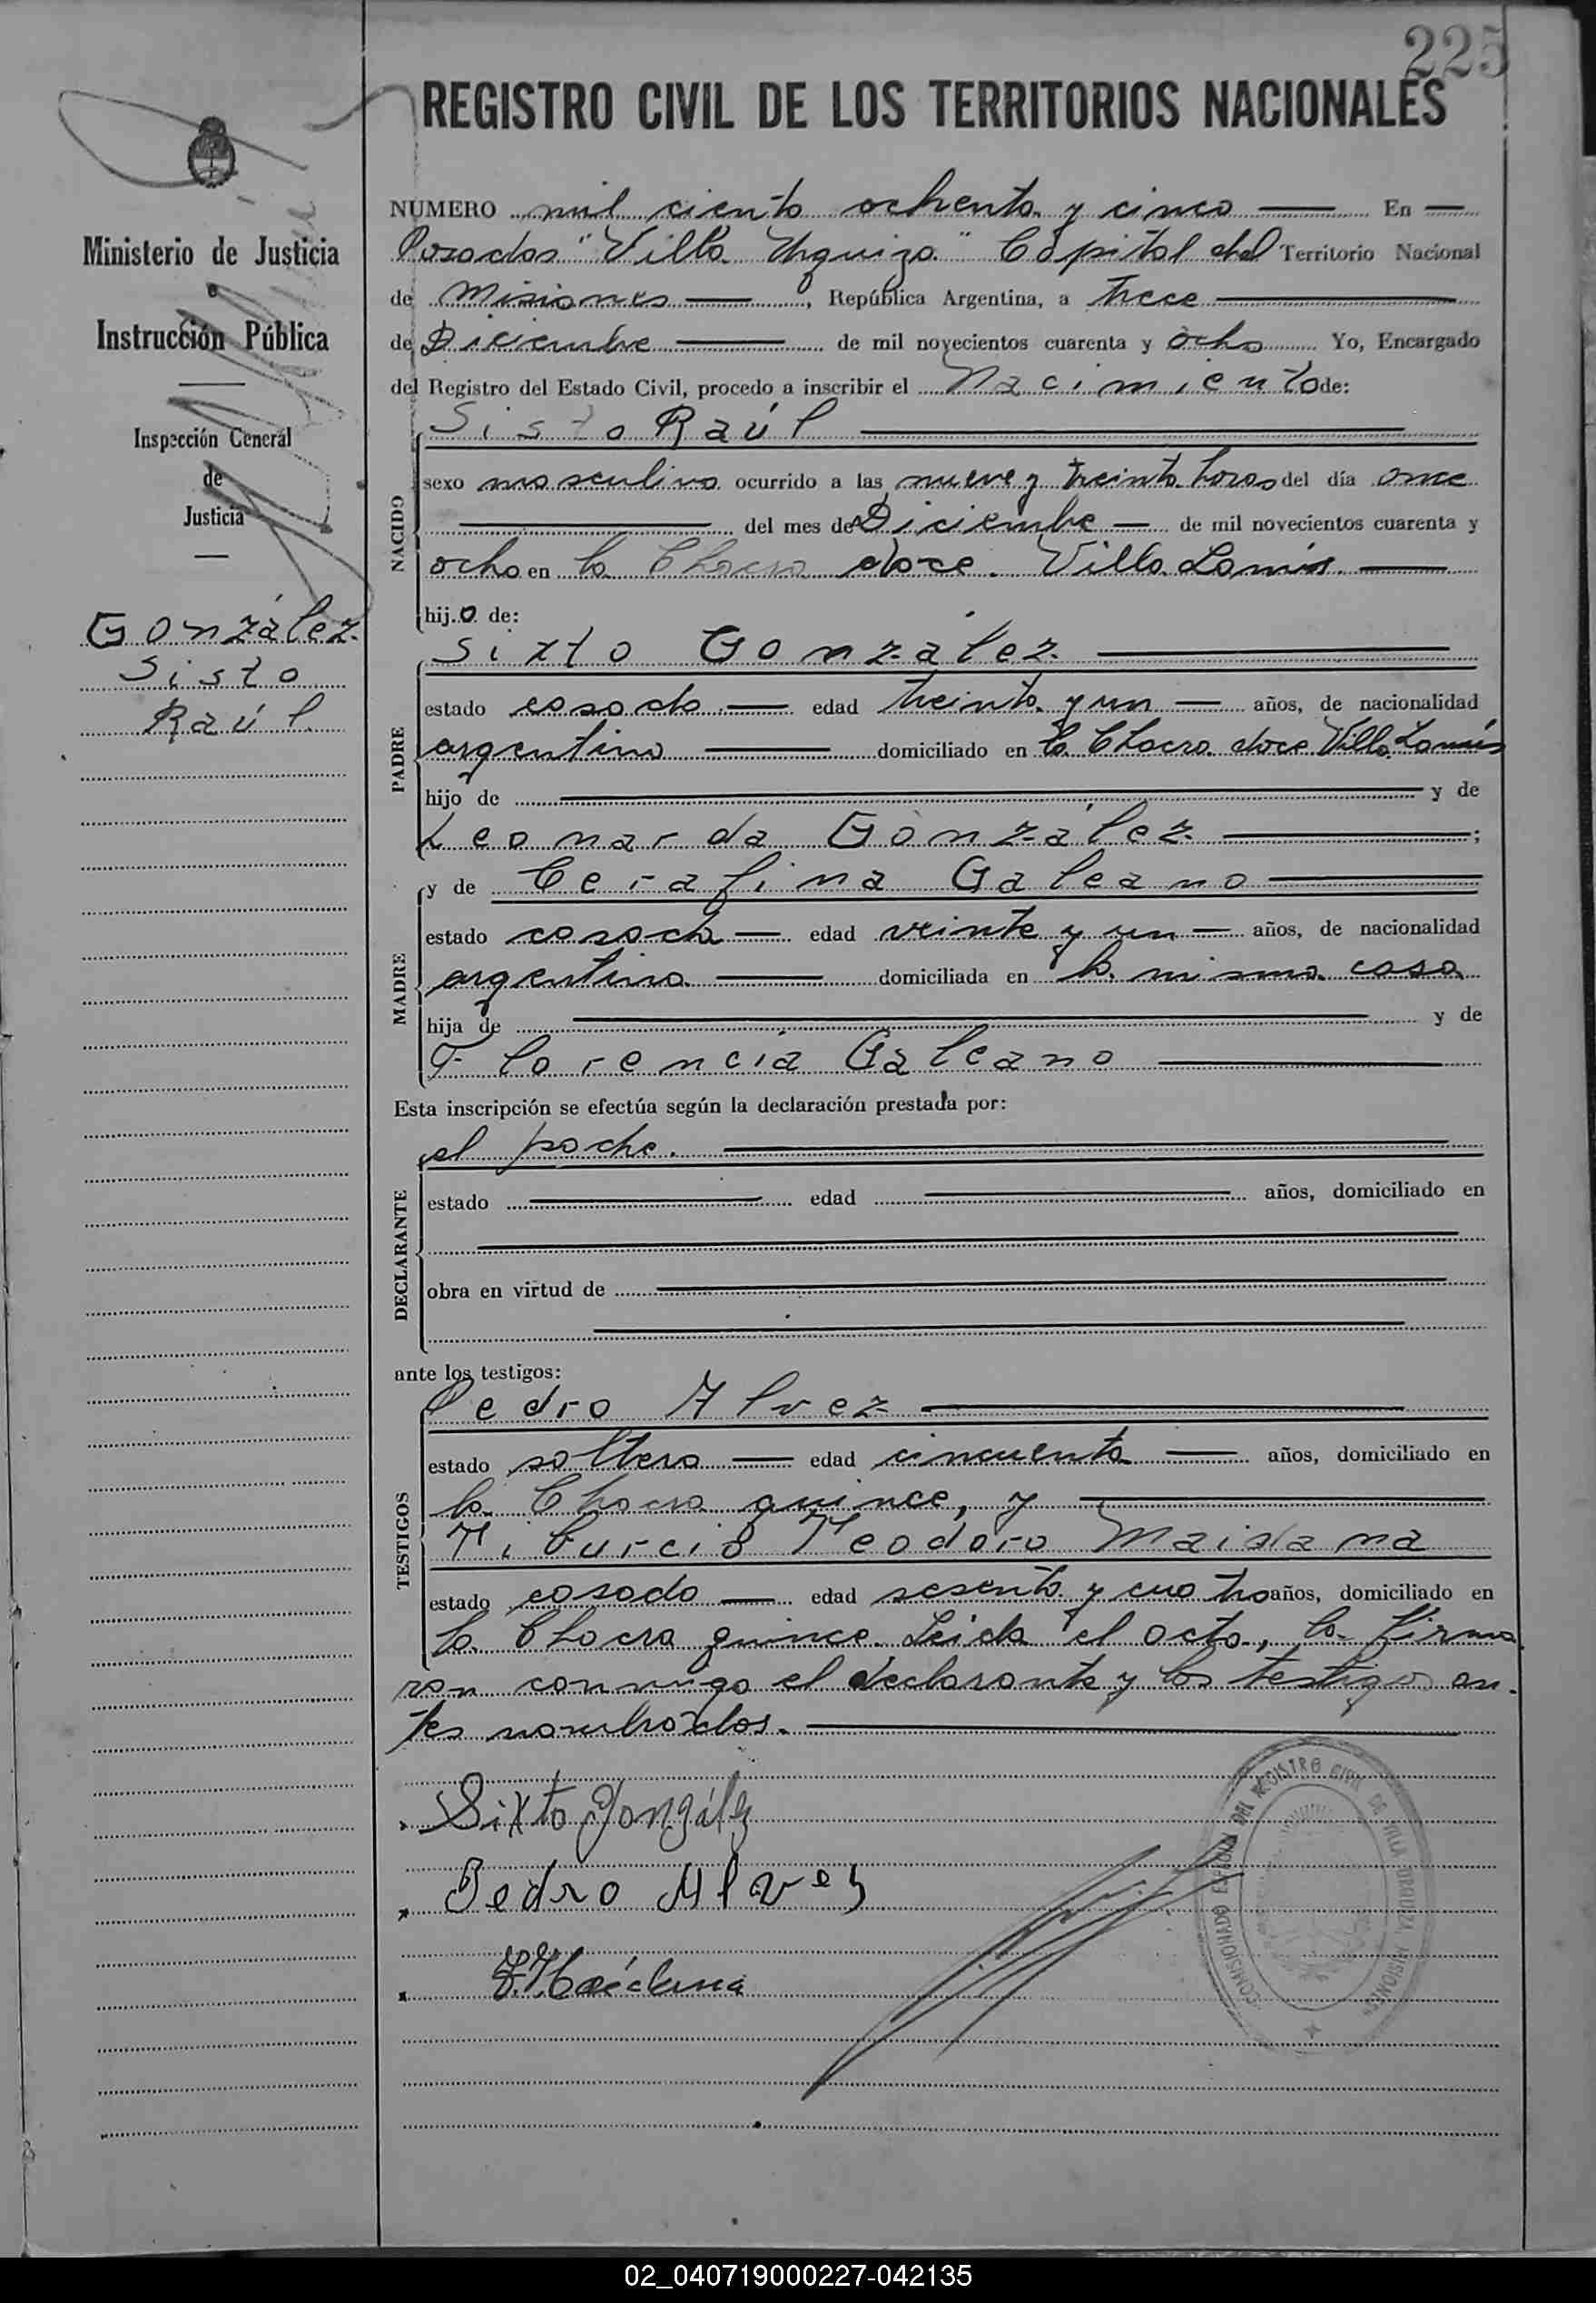 225
REGISTRO CIVIL DE LOS TERRITORIOS NACIONALES
Ministerio de Justicia
e
Instrucción Pública
Inspección General
de
Justicia
González
Sisto
Raúl.
NUMERO mil ciento ochenta y cinco En
Posadas "Villa Urquiza" Capital del Territorio Nacional
de Misiones, República Argentina, a trece
de Diciembre de mil novecientos cuarenta y ocho Yo, Encargado
del Registro del Estado Civil, procedo a inscribir el Nacimiento de:
Sisto Raúl
NACIDO
sexo masculino ocurrido a las nueve y treinta horas del día once
del mes de Diciembre de mil novecientos cuarenta y
ocho en la Chacra doce. Villa Lanús.
hijo de:
PADRE
Sixto González
estado casado edad treinta y un años, de nacionalidad
argentino domiciliado en la Chacra doce Villa Lanús
hijo de y de
Leonarda González;
MADRE
y de Cerafina Galeano
estado casada edad veinte y un años, de nacionalidad
argentina domiciliada en la misma casa
hija de y de
Florencia Galeano
Esta inscripción se efectúa según la declaración prestada por:
DECLARANTE
el padre.
estado edad años, domiciliado en
obra en virtud de
ante los testigos:
TESTIGOS
Pedro Alvez
estado soltero edad cincuenta años, domiciliado en
la Chacra quince, y
Tiburcio Teodoro Maidana
estado casado edad sesenta y cuatro años, domiciliado en
la Chacra quince. Leida el acta, la firma
ron conmigo el declarante y los testigos an-
tes nombrados.
Sixto González
Pedro Alvez
T.T. Maidana
COMISIONADO ESPECIAL DEL REGISTRO CIVIL DE VILLA URQUIZA, MISIONES
02_040719000227-042135